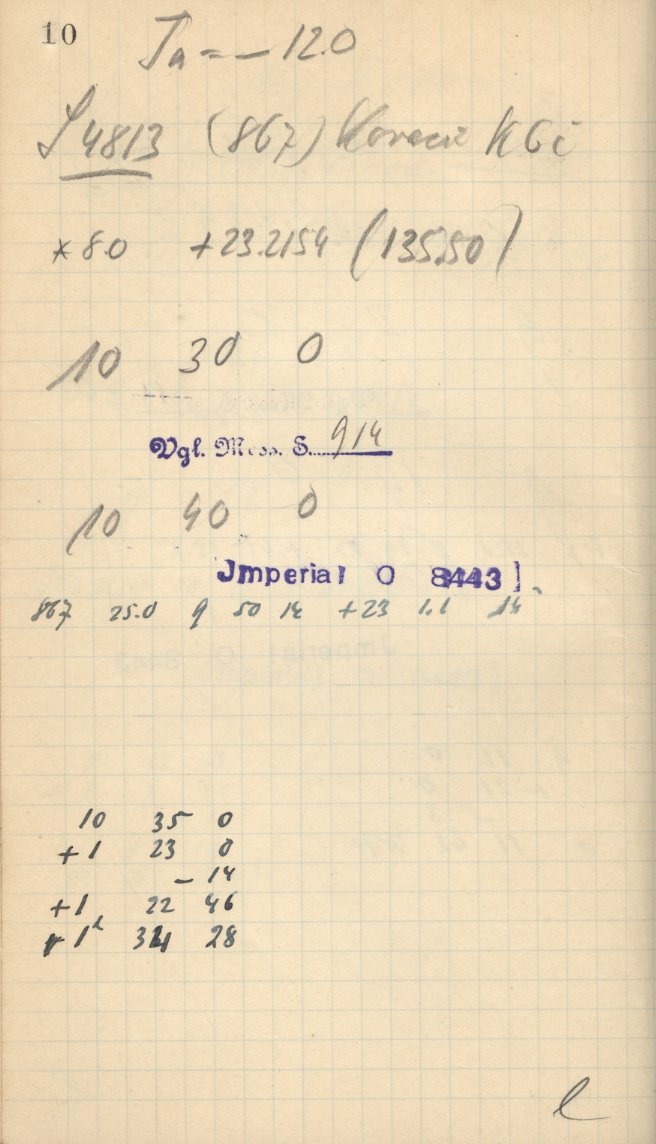 10
Ta = –12.0
S 4813 (867) Kovacia KGi
*8.0 +23.2154 (135.50)
10 30 0
Vgl. Mess. S. 914
10 40 0
Jmperial O 8443
867 25.0 9 50 14 +23 1.1 14
10 35 0
+1 23 0
– 14
+1 22 46
1h 34 28
l